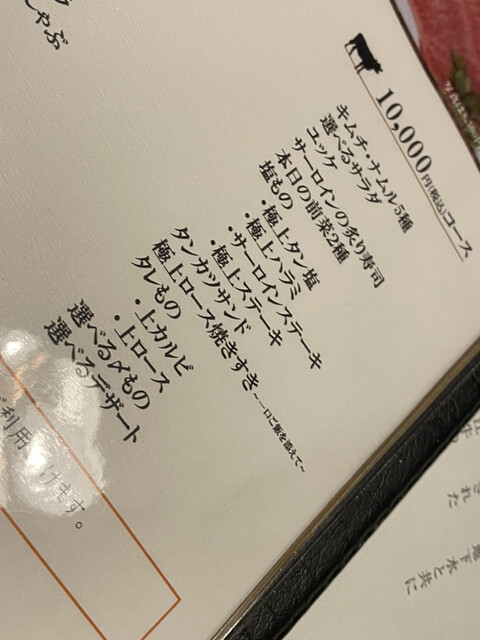 しゃぶ
10,000円(税込)コース
キムチ・ナムル5種
選べるサラダ
ユッケ
サーロインの炙り寿司
本日の前菜2種
塩もの
・極上タン塩
・極上ハラミ
・サーロインステーキ
・極上ステーキ
タンカツサンド
極上ロース焼きすき~一口ご飯を添えて~
タレもの
・上カルビ
・上ロース
選べる〆もの
選べるデザート
利用
けます。
された
地下水と共に